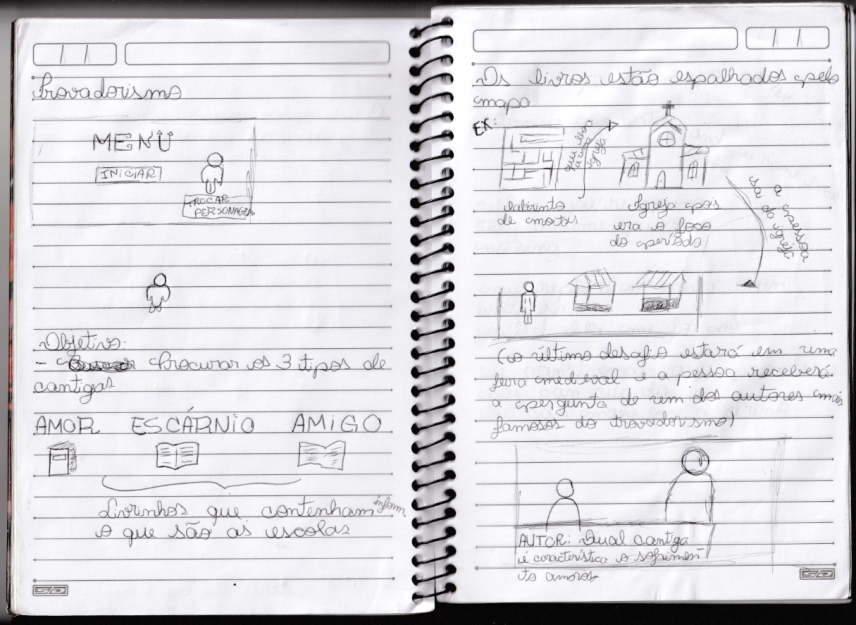 Trovadorismo
MENU
INICIAR
TROCAR
PERSONAGEM
Objetivo:
- Procurar os 3 tipos de
cantigas
AMOR ESCÁRNIO AMIGO
Livrinhos que contenham inform
o que são as escolas
Os livros estão espalhados pelo
mapa
EX:
labirinto
de
Igreja pois
era o foco
do período
a pessoa
sai da igreja
(o último desafio estará em uma
feira medieval e a pessoa receberá
a pergunta de um dos autores mais
famosos do trovadorismo)
AUTOR: Qual cantiga
é característico o sofrimen
to amoroso